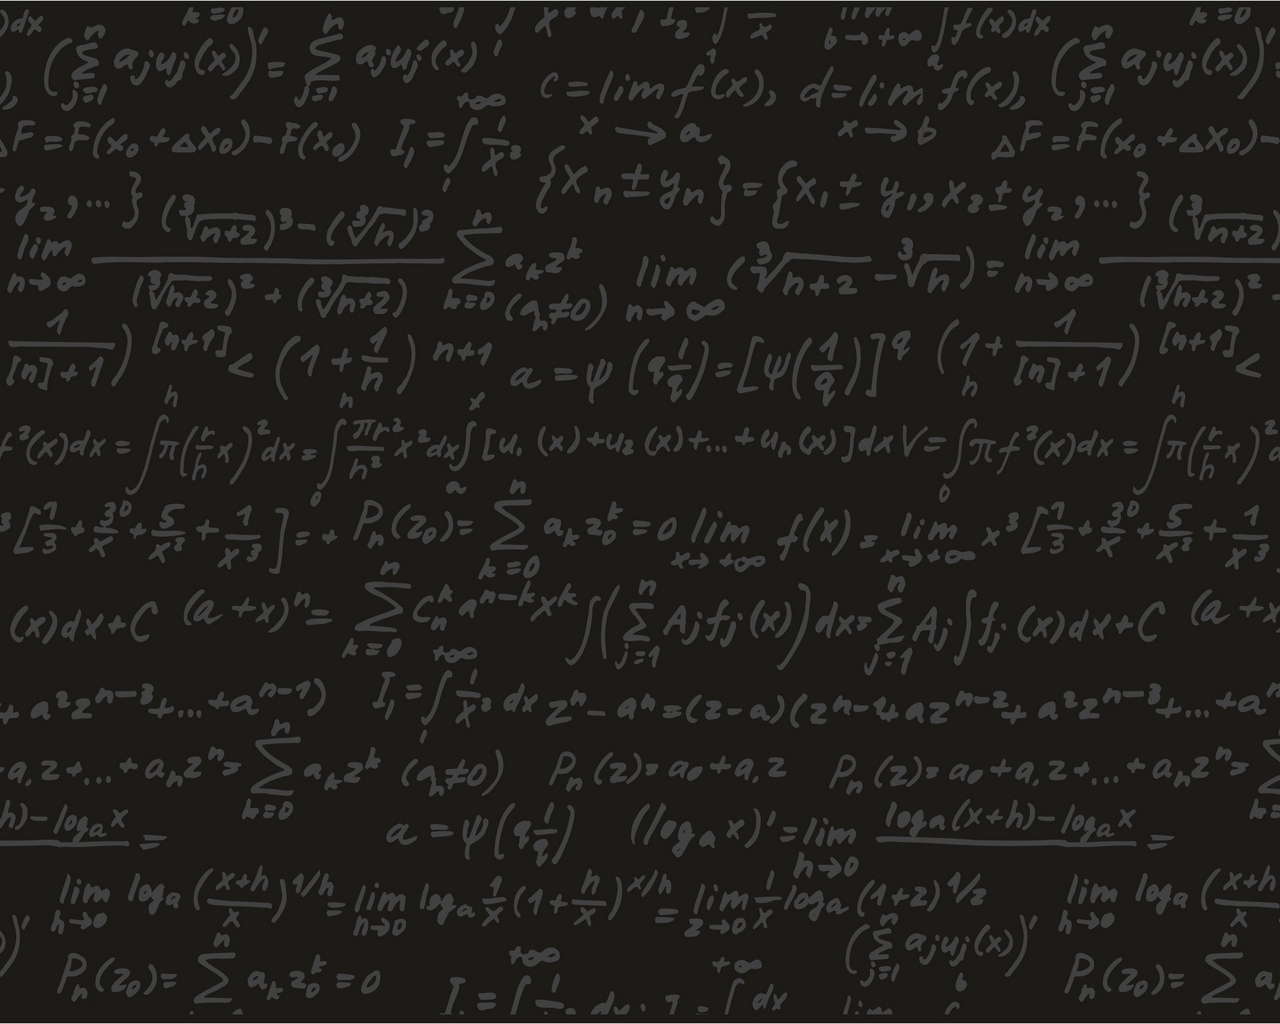 )dx k=0 n -1 ∫ lim b→+∞ ∫ₐ f(x)dx k=0
(∑ⁿⱼ₌₁ aⱼuⱼ(x))′ = ∑ⁿⱼ₌₁ aⱼuⱼ′(x) c = lim f(x), x→a d = lim f(x), x→b (∑ⁿⱼ₌₁ aⱼuⱼ(x))′
ΔF = F(x₀ + Δx₀) − F(x₀) I₁ = ∫₁⁺∞ 1/x² ΔF = F(x₀ + Δx₀) −
y₂, ... } {xₙ ± yₙ} = {x₁ ± y₁, x₂ ± y₂, ... }
lim n→∞ ((∛n+2)³ − (∛n)³)/((∛n+2)² + (∛n+2)) ∑ⁿₖ₌₀ aₖzᵏ (aₙ≠0) lim n→∞ (∛n+2 − ∛n) = lim n→∞ (∛n+2) / (∛n+2)² −
1/([n]+1)) [n+1] < (1 + 1/n) n+1 a = ψ(q 1/q) = [ψ(1/q)]^q (1 + 1/([n]+1)) [n+1] <
f²(x)dx = ∫ʰ π(r/h x)² dx = ∫₀ʰ πr²/h² x² dx ∫ₐˣ [u₁(x) + u₂(x) + ... + uₙ(x)]dx V = ∫₀ πf²(x)dx = ∫ʰ π(r/h x)²
³[1/3 + 30/x + 5/x² + 1/x³] = + Pₙ(z₀) = ∑ⁿₖ₌₀ aₖz₀ᵏ = 0 lim x→+∞ f(x) = lim x→+∞ x³[1/3 + 30/x + 5/x² + 1/x³
(x)dx + C (a + x)ⁿ = ∑ⁿₖ₌₀ Cₙᵏ aⁿ⁻ᵏxᵏ ∫(∑ⁿⱼ₌₁ Aⱼfⱼ(x))dx = ∑ⁿⱼ₌₁ Aⱼ∫fⱼ(x)dx + C (a + x
+ a²zⁿ⁻³ + ... + aⁿ⁻¹) I₁ = ∫₁⁺∞ 1/x² dx zⁿ − aⁿ = (z − a)(zⁿ⁻¹ + azⁿ⁻² + a²zⁿ⁻³ + ... + aⁿ
a₁z + ... + aₙzⁿ = ∑ⁿₖ₌₀ aₖzᵏ (aₙ≠0) Pₙ(z) = a₀ + a₁z Pₙ(z) = a₀ + a₁z + ... + aₙzⁿ =
h) − logₐx = a = ψ(q 1/q) (logₐx)′ = lim h→0 (logₐ(x+h) − logₐx) =
lim h→0 logₐ((x+h)/x)^1/h = lim n→0 logₐ 1/x (1 + h/x)^x/h = lim z→0 1/x logₐ(1+z)^1/z lim h→0 logₐ (x+h / x
)′ Pₙ(z₀) = ∑ⁿ aₖz₀ᵏ = 0 I = ∫⁺∞ 1 dx ∫⁺∞ dx (∑ⁿⱼ₌₁ aⱼuⱼ(x))′ b lim Pₙ(z₀) = ∑ⁿ a